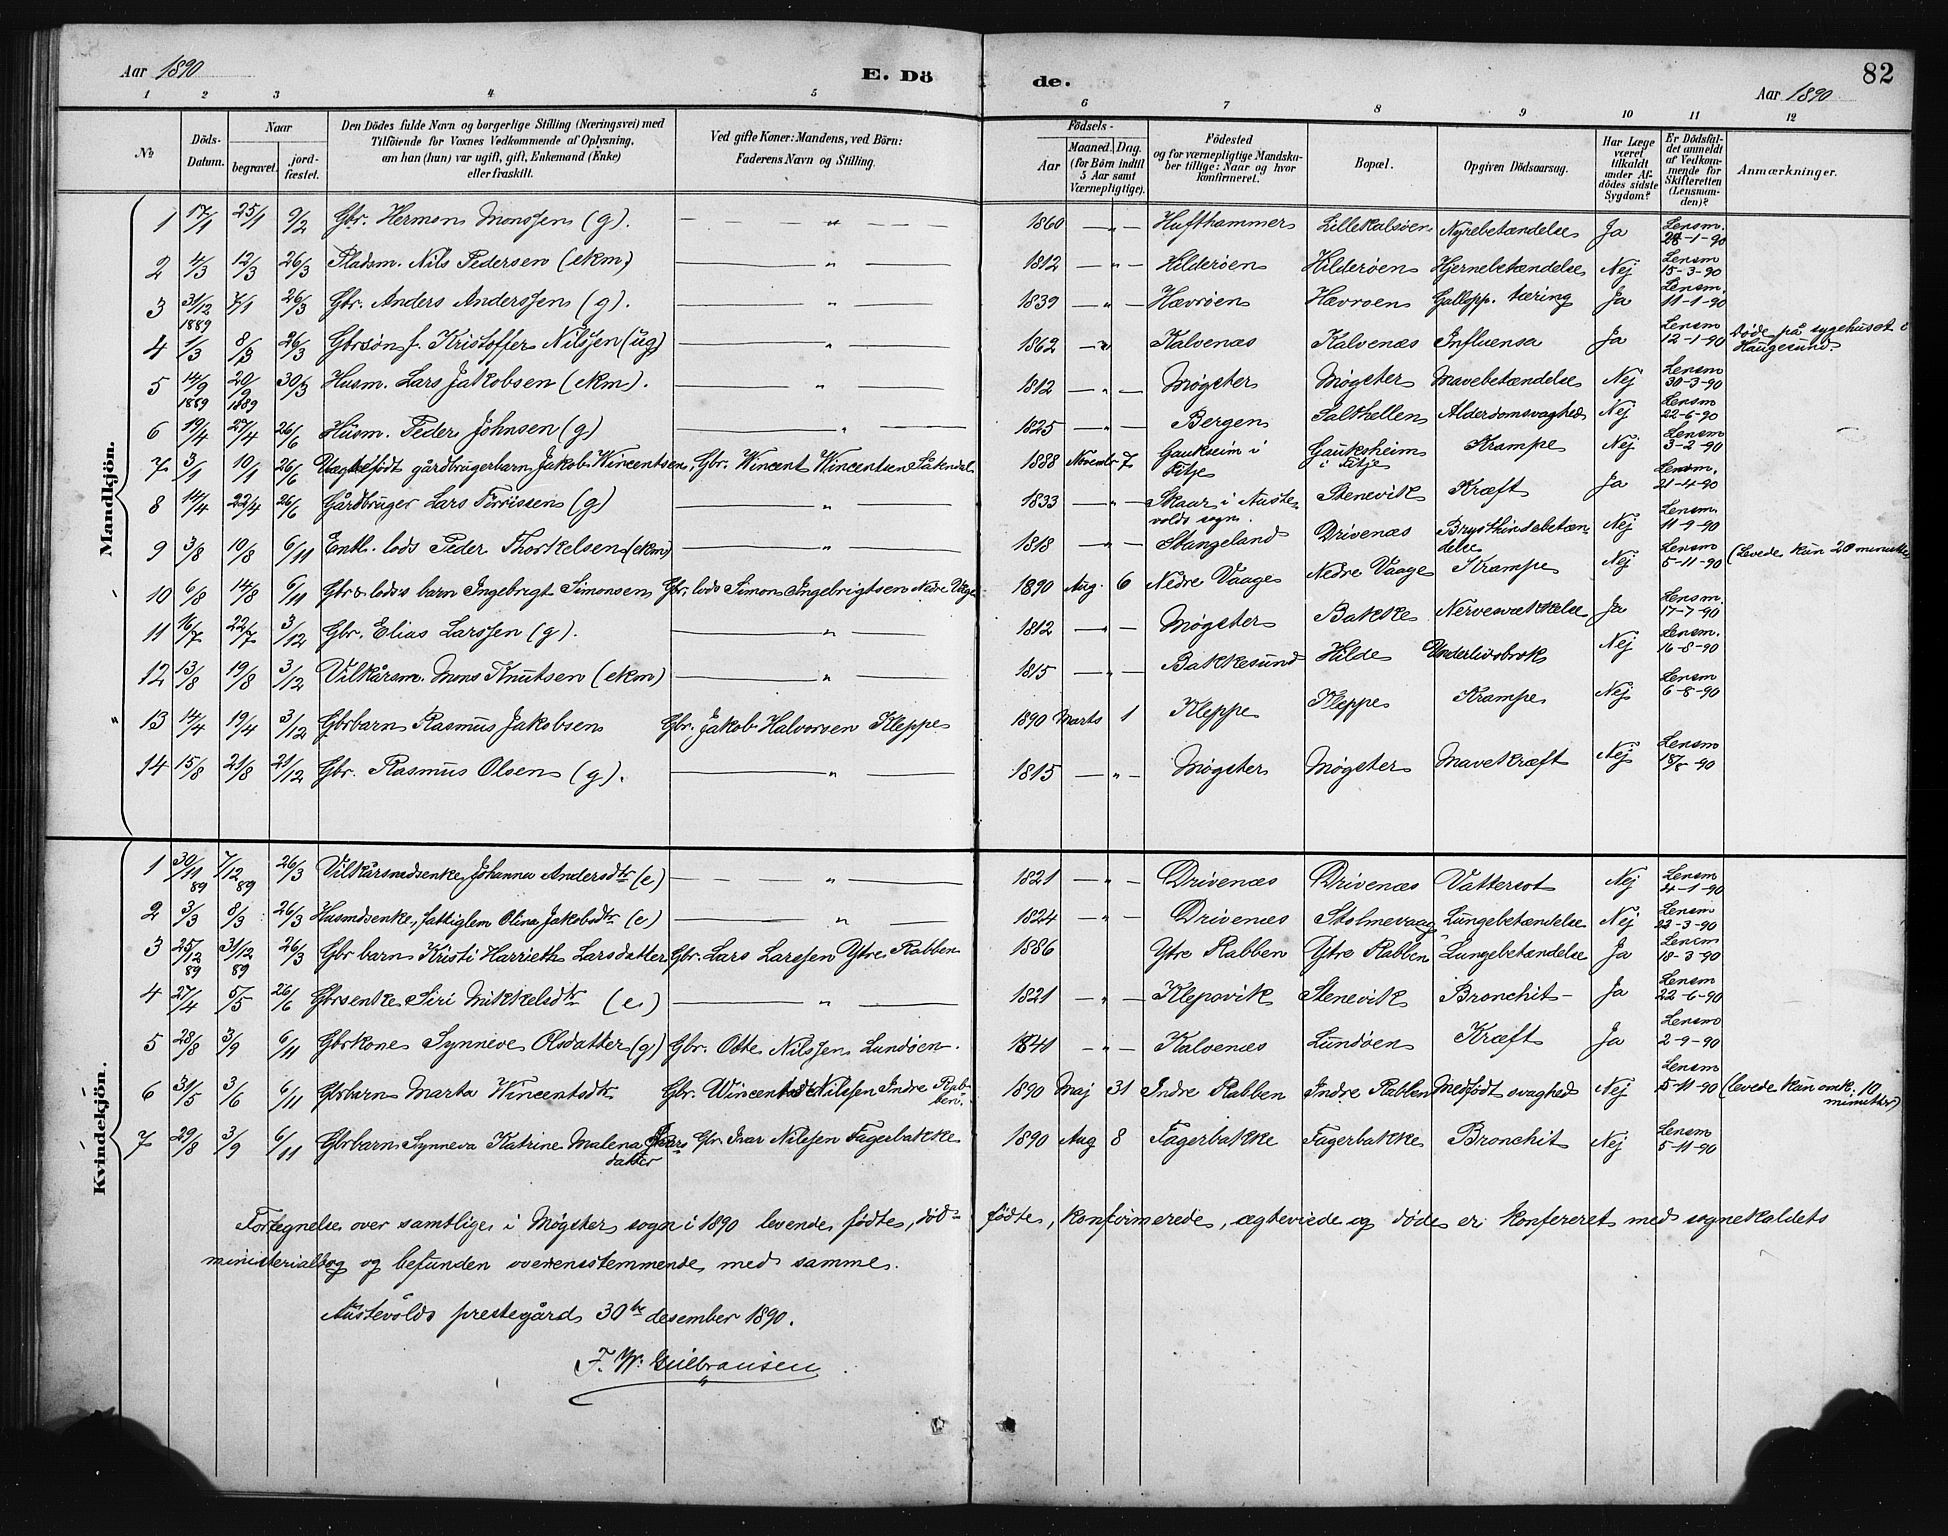 Aar 1890
E. Dö
de.
82
Aar 1890
1 2 3 4 5 6 7 8 9 10 11 12
№
Döds-
Datum.
Naar
begravet.
jord-
fæstet.
Den Dödes fulde Navn og borgerlige Stilling (Næringsvei) med
Tilföiende for Voxnes Vedkommende af Oplysning,
om han (hun) var ugift, gift, Enkemand (Enke)
eller fraskilt.
Ved gifte Koner: Mandens, ved Börn:
Faderens Navn og Stilling.
Födsels-
Aar
Maaned. Dag.
(for Börn indtil
5 Aar samt
Værnepligtige).
Födested
og for værnepligtige Mandska-
ber tillige: Naar og hvor
konfirmeret.
Bopæl.
Opgiven Dödsaarsag.
Har Læge
været
tilkaldt
under Af-
dödes sidste
Sygdom?
Er Dödsfal-
det anmeldt
af Vedkom-
mende for
Skifteretten
(Lensman-
den)?
Anmærkninger.
Mandkjön.
1 17/1 25/1 9/2 Gbr. Herman Monssen (g). — " — 1860 — " — Hufthammer Lillekalsøen Nyrebetændelse Ja Lensm. 28-1-90
2 4/3 12/3 26/3 Pladsm. Nils Pedersen (ekm) — " — 1812 — " — Hilderøen Hilderøen Hjernebetændelse Nej Lensm 15-3-90
3 31/12 1889 7/1 26/3 Gbr. Anders Anderssen (g). — " — 1839 — " — Hævrøen Hævrøen Gallopp. tæring Ja Lensm. 11-1-90
4 1/3 8/3 26/3 Gbrsøn f. Kristoffer Nilssen (ug) — " — 1862 — " — Kalvenæs Kalvenæs Influensa Ja Lensm 12-1-90 Døde på sygehuset i
Haugesund.
5 14/9 1889 20/9 1889 30/3 Husm. Lars Jakobsen (ekm). — " — 1812 — " — Møgster Møgster Mavebetændelse Nej Lensm 30-3-90
6 19/4 27/4 26/6 Husm. Peder Johnsen (g) — " — 1825 — " — Bergen Salthellen Alderdomsvaghed Nej Lensm 22-6-90
7 3/1 10/1 26/6 Ægtefødt gårdbrugerbarn Jakob Wincentsen, Gbr. Wincent Wincentsen 1888 Novembr 7 Gaukseim i
Fitje Gauksheim
i Fitje Krampe Nej Lensm 3-2-90
8 14/4 22/4 26/6 Gårdbruger Lars Torrissen (g) — " — 1833 — " — Skaar i Auste-
volds sogn. Stenevik Kræft Ja Lensm. 21-4-90
9 3/8 10/8 6/11 Entl. lods Peder Thorkelsen (ekm) — " — 1818 — " — Stangeland Drivenæs Brysthindebetæn-
delse Nej Lensm. 11-9-90
10 6/8 14/8 6/11 Gbr & lods's barn Ingebrigt Simonsen Gbr, lods Simon Ingebrigtsen Nedre Våge 1890 Aug. 6 Nedre Vaage Nedre Vaage Krampe Nej Lensm 5-11-90 (Levede kun 20 minutter
11 16/7 22/7 3/12 Gbr. Elias Larssen (g). — " — 1812 — " — Møgster Bakke Nervesvækkelse Ja Lensm. 17-7-90
12 13/8 19/8 3/12 Vilkårsm. Mons Knutsen (ekm) — " — 1815 — " — Bakkesund Hilde Underlivsbrok Nej Lensm. 16-8-90
" 13 14/4 19/4 3/12 Gbrbarn Rasmus Jakobsen Gbr. Jakob Halvorsen Kleppe 1890 Marts 1 Kleppe Kleppe Krampe Nej Lensm 6-8-90
14 15/8 21/8 21/12 Gbr. Rasmus Olsen (g). — " — 1815 — " — Møgster Møgster Mavekræft Nej Lensm 18/8-90
Kvindekjön.
1 30/11 89 7/12 89 26/3 Vilkårsmdsenke Johanna Andersdtr (e) — " — 1821 — " — Drivenæs Drivenæs Vattersot Nej Lensm 4-1-90
2 3/3 8/3 26/3 Husmdsenke, fattiglem Olina Jakobsdtr (e) — " — 1824 — " — Drivenæs Stolmevaag Lungebetændelse Nej Lensm 23-3-90
3 25/12 89 31/12 89 26/3 Gbr barn Kristi Harrieth Larsdatter Gbr. Lars Larssen Ytre Rabben 1886 Ytre Rabben Ytre Rabben Lungebetændelse Ja Lensm 18-3-90
4 27/4 5/5 26/6 Gbrsenke Siri Mikkelsdtr (e) — " — 1821 — " — Klepsvik Stenevik Bronchit- Ja Lensm 22-6-90
5 28/8 3/9 6/11 Gbrkone Synneve Olsdatter (g) Gbr. Otte Nilssen Lundøen. 1841 — " — Kalvenæs Lundøen Kræft Ja Lensm 2-9-90
6 31/5 3/6 6/11 Gbrbarn Marta Wincentsdtr Gbr. Wincent Nilssen Indre Rab-
ben. 1890 Maj 31 Indre Rabben Indre Rabben Medfødt svaghed Nej Lensm 5-11-90 (levede kun omk. 10
minutter)
7 29/8 3/9 6/11 Gbrbarn Synneva Katrine Malena Ivars
datter Gbr. Ivar Nilssen Fagerbakke 1890 Aug 8 Fagerbakke Fagerbakke Bronchit Nej Lensm 5-11-90
Fortegnelse over samtlige i Møgster sogn i 1890 levende fødte, død- fødte, konfirmerede, ægteviede og døde er konfereret med sognekaldets
ministerialbog og befunden overensstemmende med samme.
Austevolds prestegård 30te desember 1890.
F. W. Gulbransen